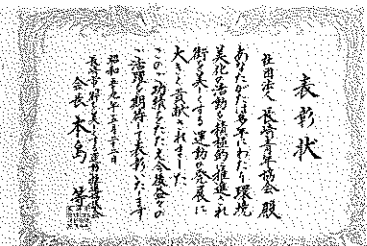 表彰状
社団法人 長崎青年協会 殿
あなたがたは多年にわたり環境
美化の活動を積極的に推進され
街を美しくする運動の発展に
大きく貢献されました
このご功績をたたえ今後益々の
ご活躍を期待して表彰いたします
昭和五十九年三月二十一日
会長 本島 等